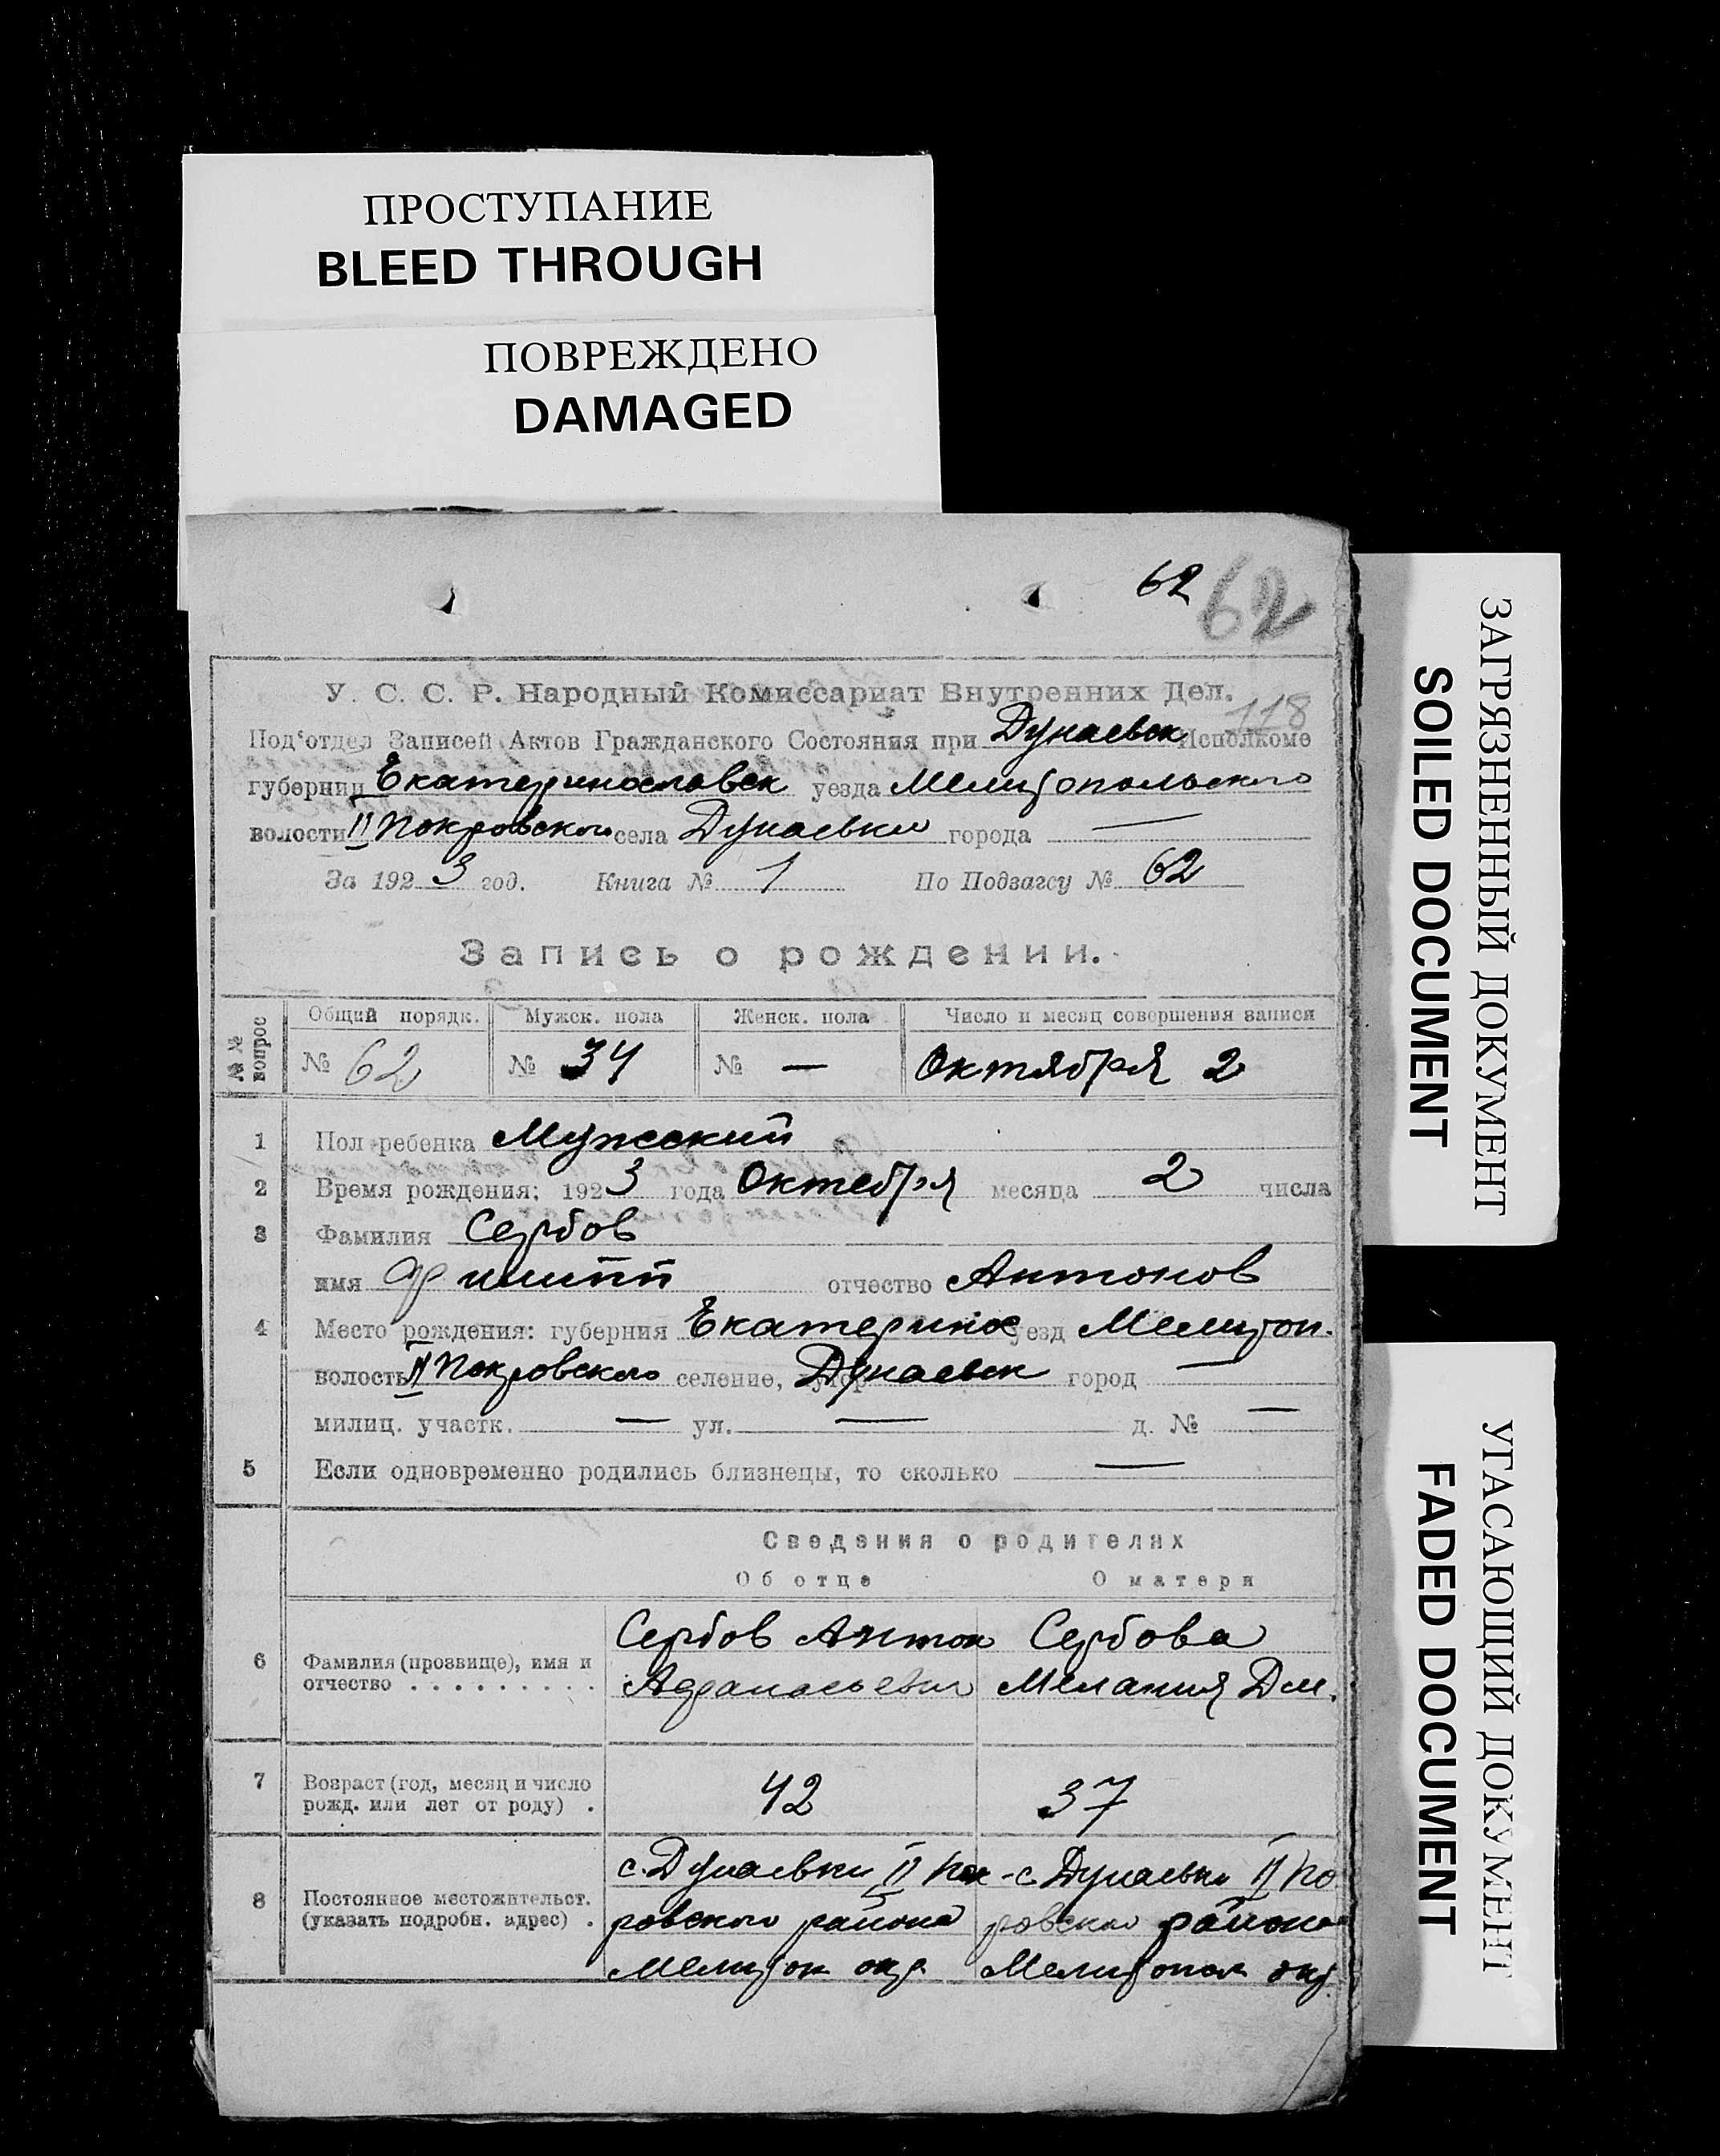 ПРОСТУПАНИЕ
BLEED THROUGH
ПОВРЕЖДЕНО
DAMAGED
62 62
У. С. С. Р. Народный Комиссариат Внутренних Дел.
118
Под'отдел Записей Актов Гражданского Состояния при Дунаевск Исполкоме
губернии Екатеринославск уезда Мелитопольского
волости II Покровского села Дунаевки города —
За 1923 год. Книга № 1 По Подзагсу № 62
Запись о рождении.
№№ вопрос
Общий порядк. Мужск. пола Женск. пола Число и месяц совершения записи
№ 62 № 34 № — Октября 2
1 Пол ребенка Мужеский
2 Время рождения: 1923 года Октебря месяца 2 числа
3 Фамилия Сербов
имя Филипп отчество Антонов
4 Место рождения: губерния Екатеринос уезд Мелитоп.
волость II Покровского селение, хутор Дунаевск город —
милиц. участк. — ул. — д. № —
5 Если одновременно родились близнецы, то сколько —
Сведения о родителях
Об отце О матери
6 Фамилия (прозвище), имя и отчество . . . . . . . . .
Сербов Антон
Афанасьевич
Сербова
Мелания Дм.
7 Возраст (год, месяц и число рожд. или лет от роду) .
42 37
8 Постоянное местожительст. (указать подробн. адрес) .
с. Дунаевки II Пок-
ровского района
Мелитоп окр
с. Дунаевки II По
ровского района
Мелитопол окр.
ЗАГРЯЗНЕННЫЙ ДОКУМЕНТ
SOILED DOCUMENT
УГАСАЮЩИЙ ДОКУМЕНТ
FADED DOCUMENT